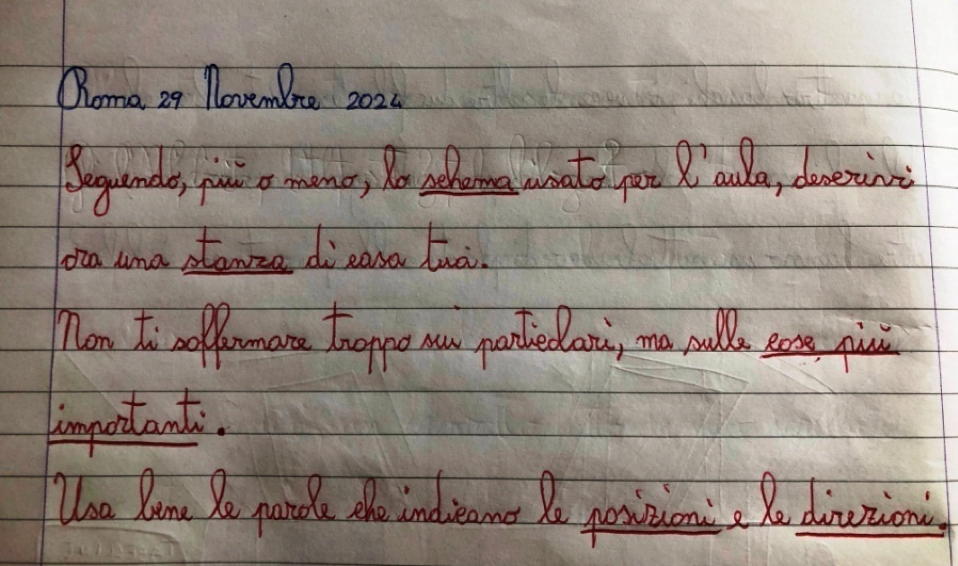 Roma 29 Novembre 2024
Seguendo, più o meno, lo schema usato per l'aula, descrivi
ora una stanza di casa tua.
Non ti soffermare troppo sui particolari, ma sulle cose più
importanti.
Usa bene le parole che indicano le posizioni e le direzioni.